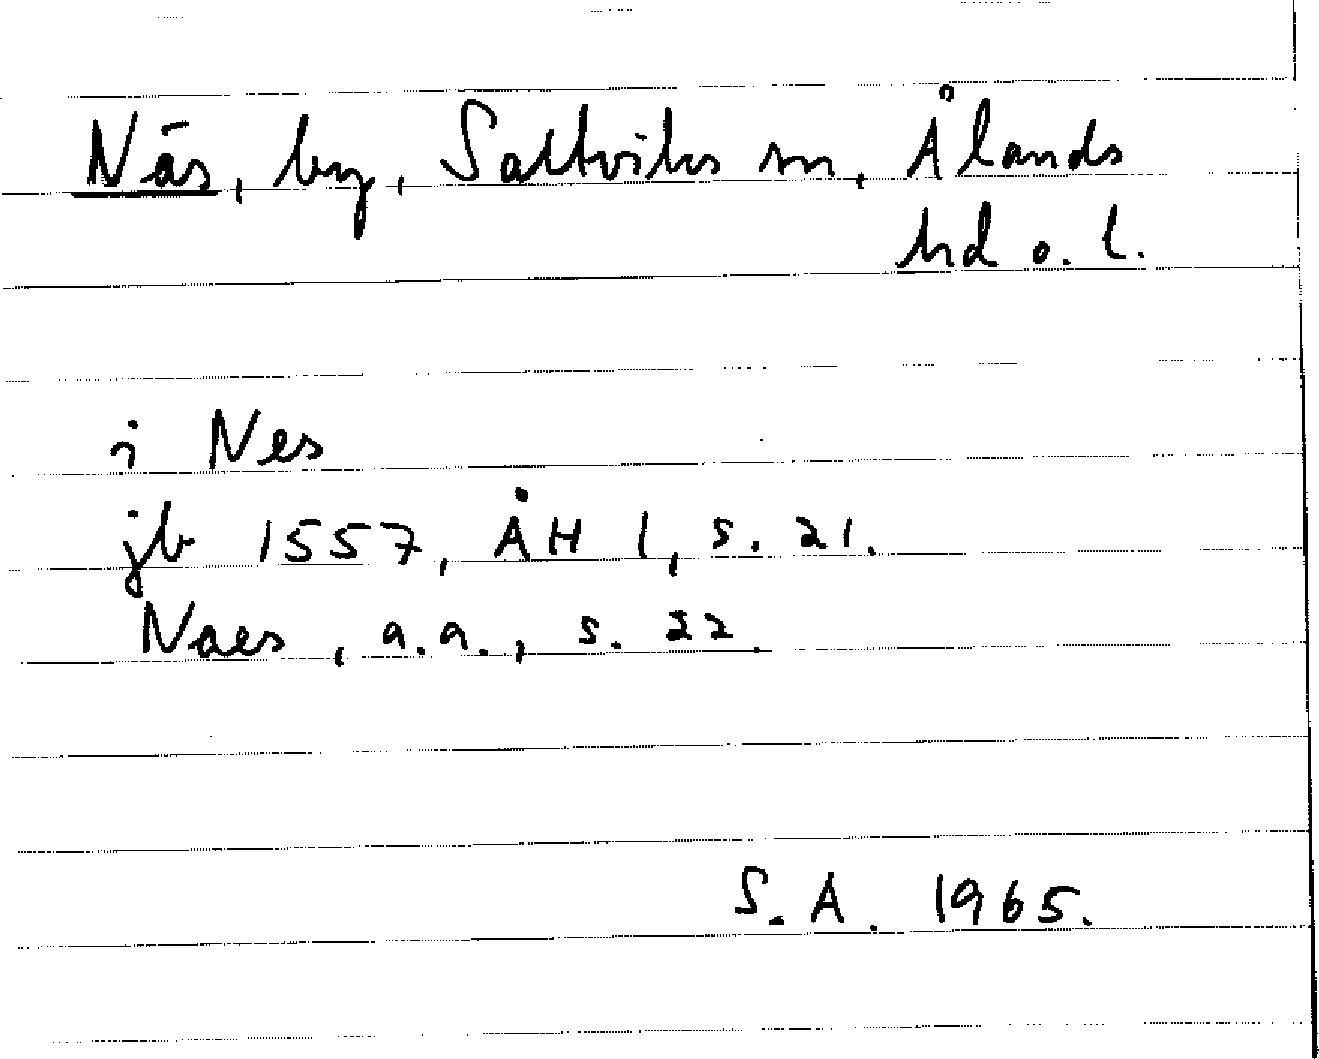 Näs, by, Saltviks sn, Ålands
hd o. l.
i Nes
jb 1557, ÅH 1, s. 21.
Naes, a.a., s. 22.
S. A. 1965.